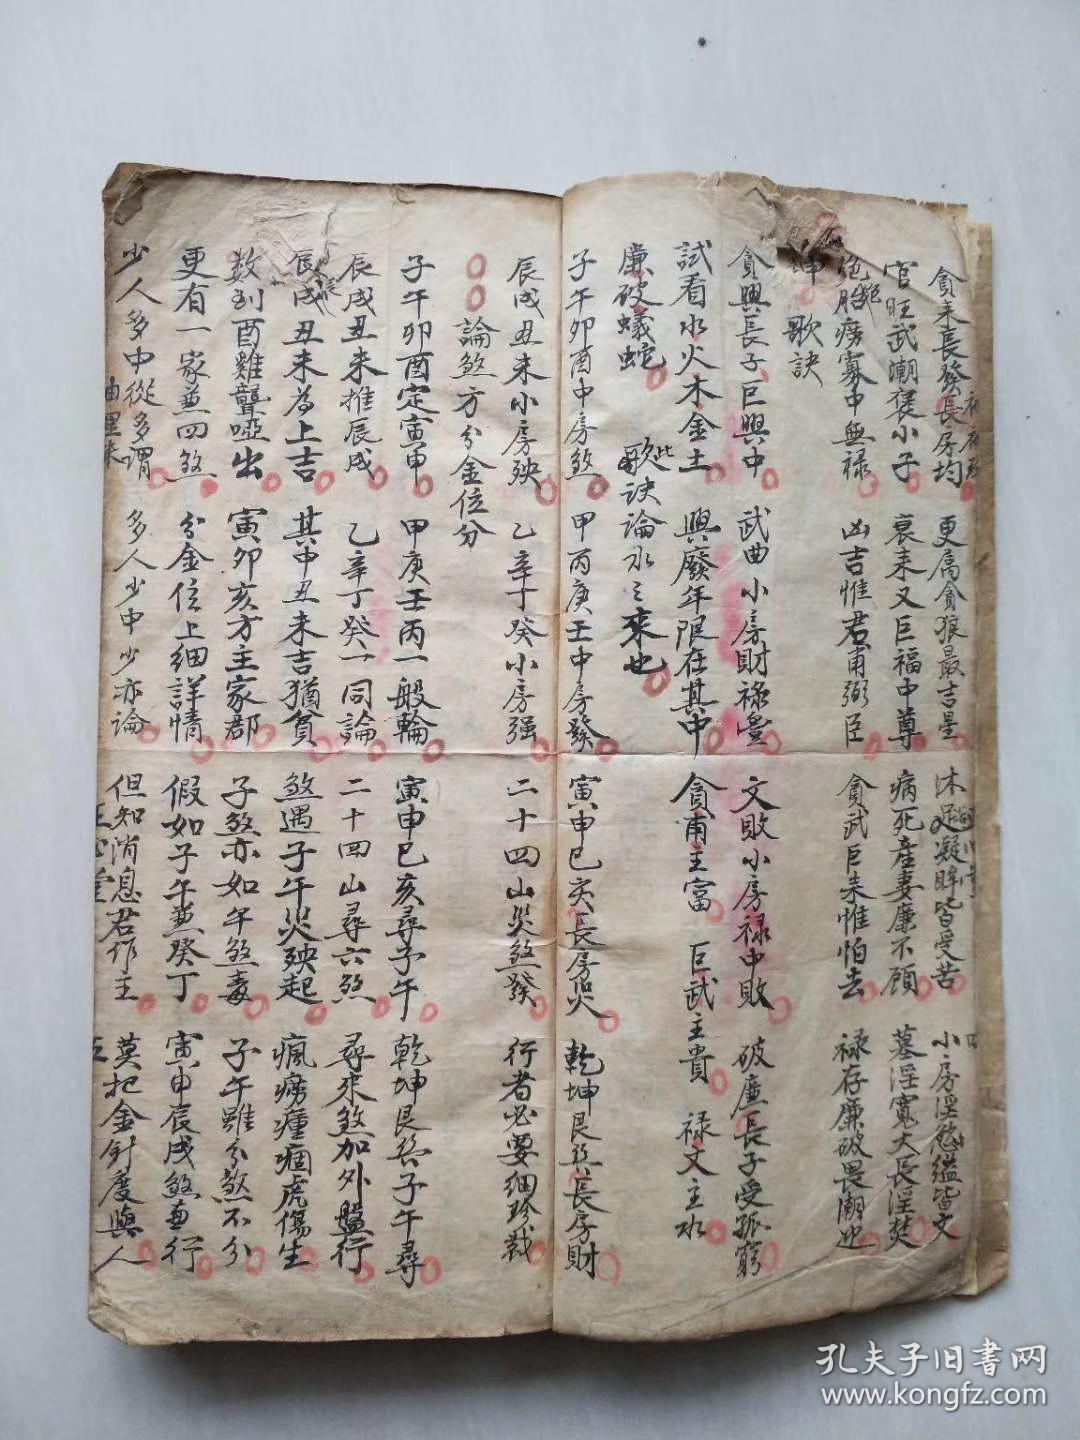 貪来長發長房均 更屬貪狼最吉星 沐 凝眸皆受苦 小房淫慾繼皆文
官旺武潮褒小子 衰来又巨福中尊 病死産妻廉不顧 墓淫寬大長淫焚
絶胎癆寡中無禄 凶吉惟君甫弼臣 貪武巨来惟怕去 禄存廉破畏潮迎
坤 歌訣
貪興長子巨興中 武曲小房財禄豊 文敗小房禄中敗 破廉長子受孤窮
試看水火木金土 興廢年限在其中 貪甫主富 巨武主貴 禄文主水
廉破蟻蛇 此歌訣論水之来也
子午卯酉中房煞 甲丙庚壬中房發 寅申巳亥長房災 乾坤艮巽長房財
辰戌丑未小房殃 乙辛丁癸小房强 二十四山災煞發 行者必要細珍裁
論煞方分金位分
子午卯酉定寅申 甲庚壬丙一般輪 寅申巳亥尋子午 乾坤艮巽子午尋
辰戌丑未推辰戌 乙辛丁癸一同論 二十四山尋六煞 尋來煞加外盤行
辰戌丑未為上吉 其中丑未吉猶貧 煞遇子午災殃起 瘋癆瘇痼虎傷生
数到酉雞聾啞出 寅卯亥方主家郡 子煞亦如午煞毒 子午雖分煞不分
更有一家兼四煞 分金位上細詳情 假如子午兼癸丁 寅申辰戌煞兼行
少人多中從多謂 多人少中少亦論 但知消息君作主 莫把金針度與人
孔夫子旧書网
www.kongfz.com